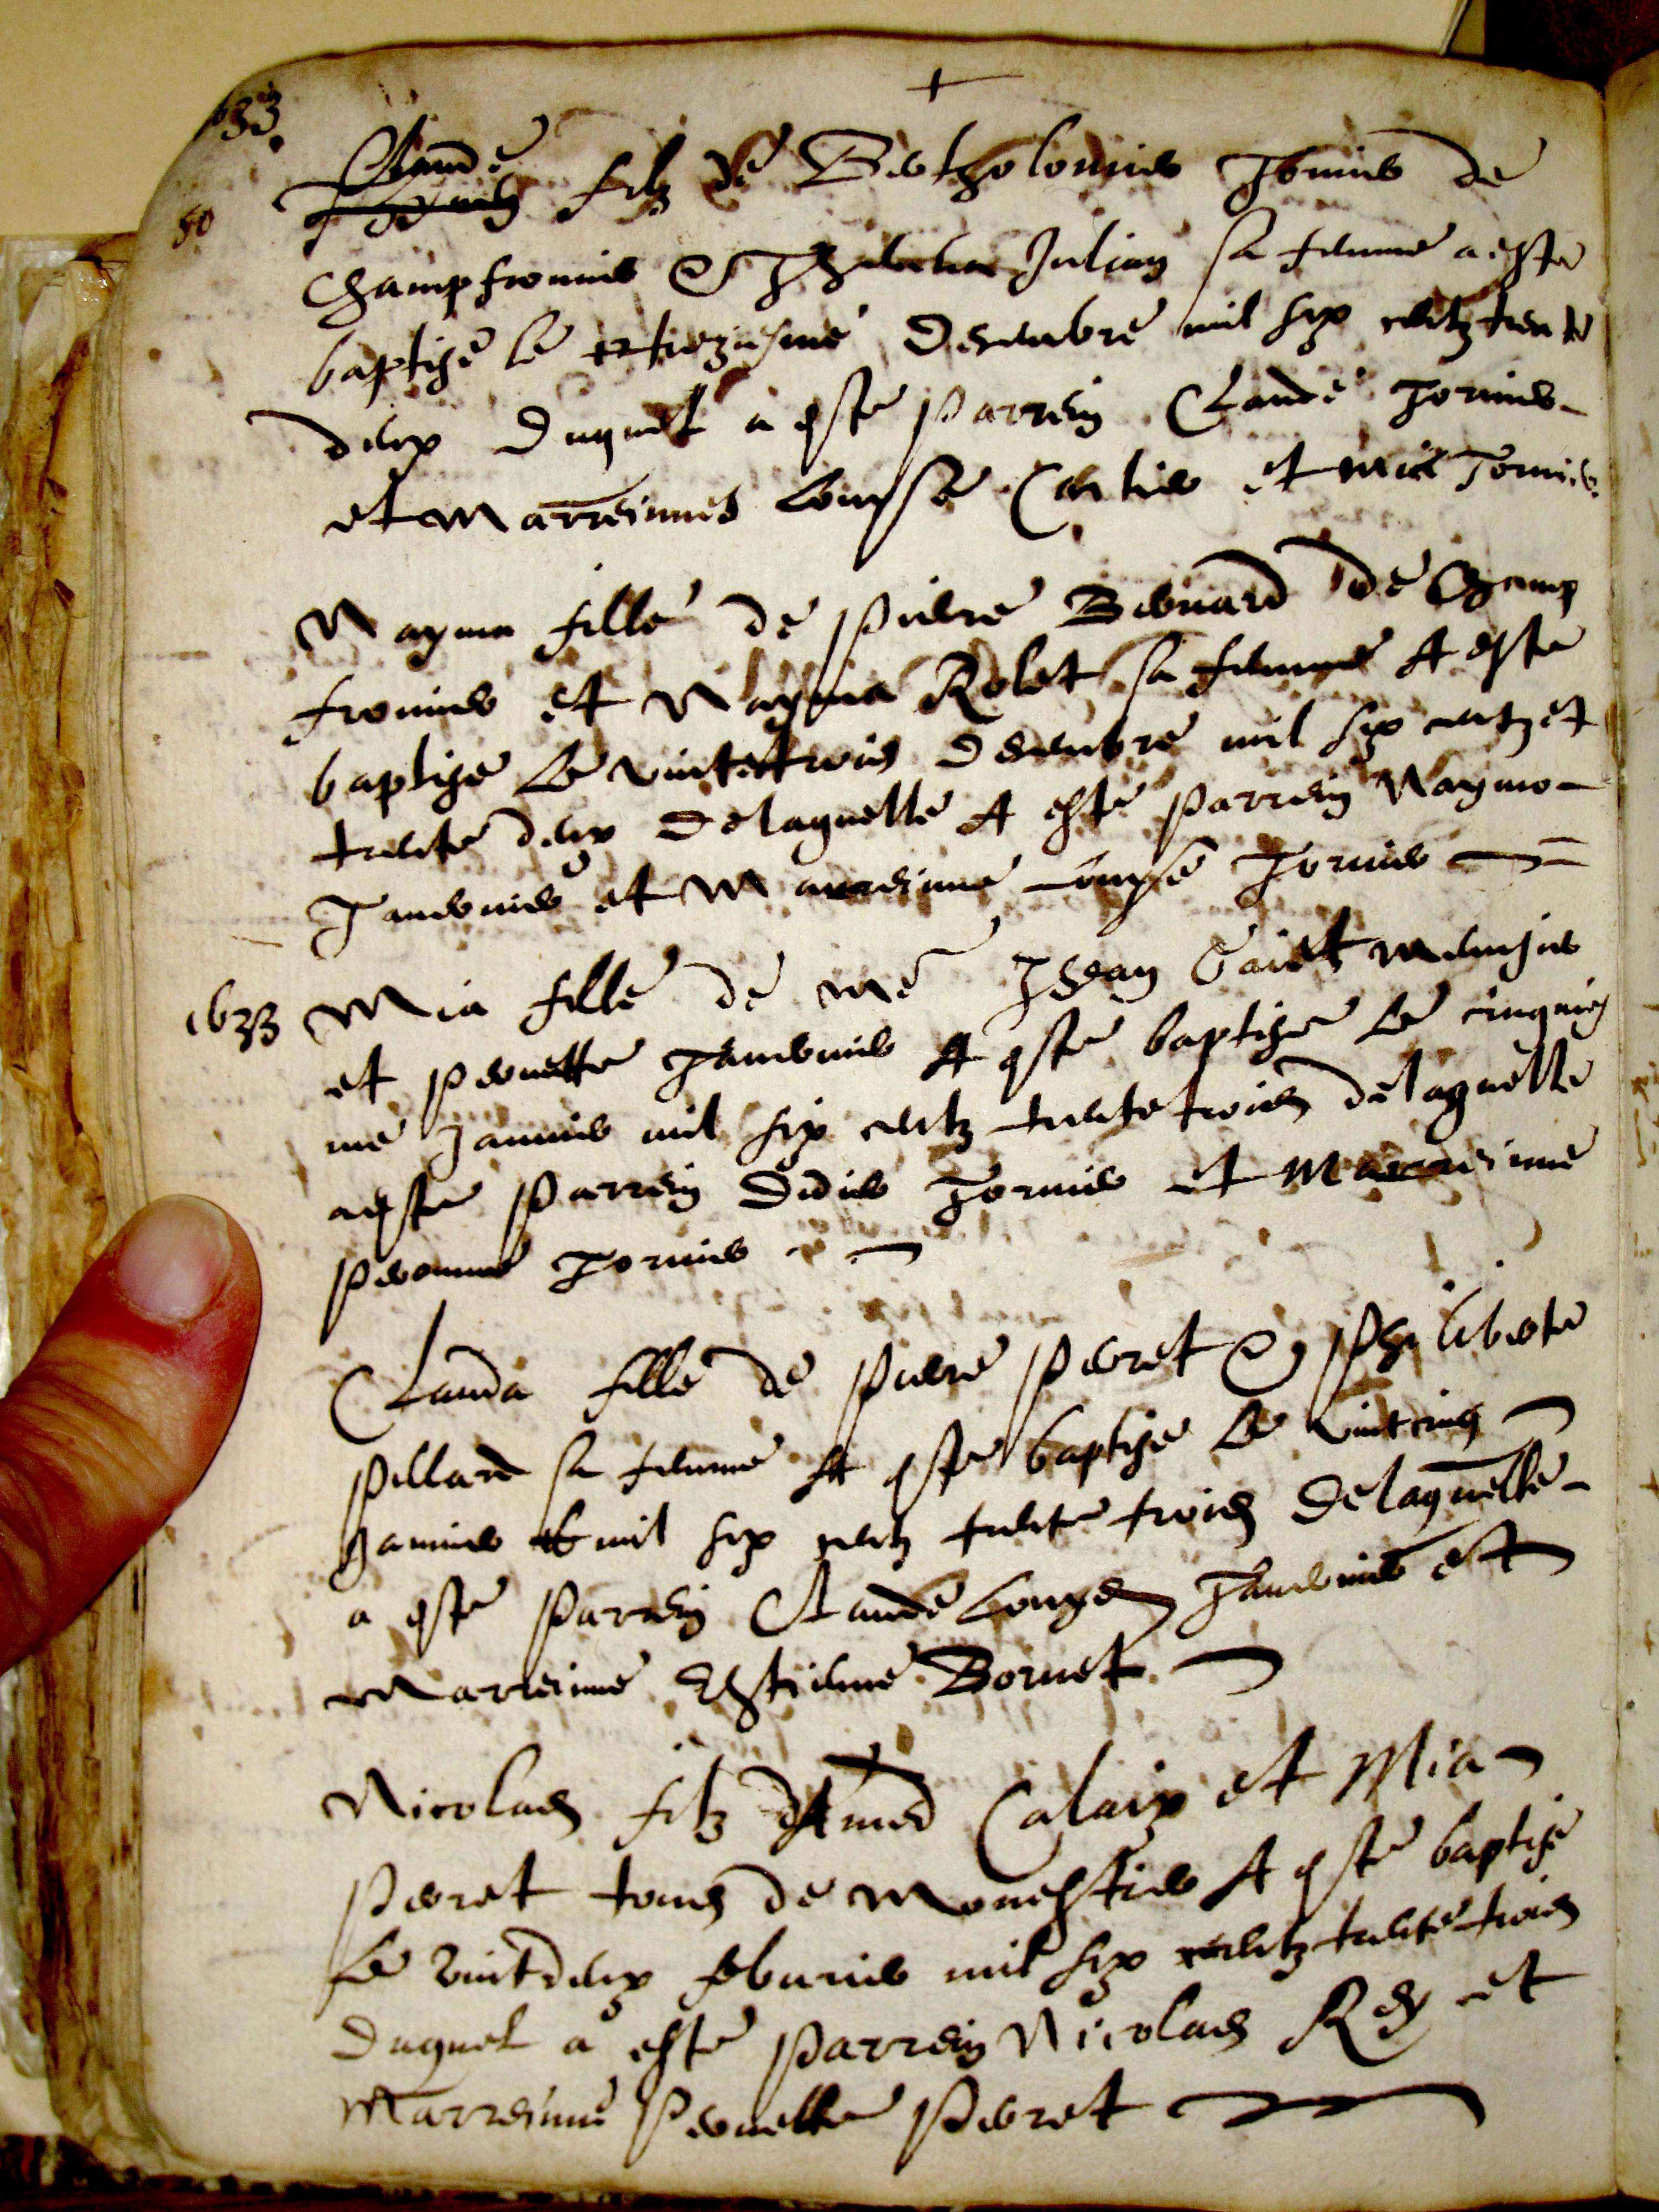 1633.
+
Claude
50
filz de Bertholomier Tornier de
Champfromier & Julian sa femme a este
baptise le treziesme decembre mil six centz trente
deux Duquel a este parrein Claude Tornier
et Marreinnes Louyse et Mia Tornier
Mayma fille de pierre Bernard de Champ
fromier et Mayma Rolet sa femme A este
baptise Le vintettrois decembre mil six centz et
trente deux Delaquelle A este parrein Maymo
Tavernier et Marreinne Louyse Tornier
1633 Mia fille de me Jhean Caiet
et pernette Tavernier A este baptise Le cinquies
me Janvier mil six centz trentetrois delaquelle
a este parrein Didier Tornier et Marreinne
peronne Tornier
Clauda fille de pierre perret & philiberte
pillard sa femme A este baptise Le vintcinq
Janvier mil six centz trente trois Delaquelle
a este parrein Claude Louys Tavernier et
Marreinne Estienne Bornet
Nicolas filz dAmed Calaix et Mia
perret tous de Monestier A este baptise
Le vintdeux febvrier mil six centz trente trois
Duquel a este parrein Nicolas Rey et
Marreinne pernette perret